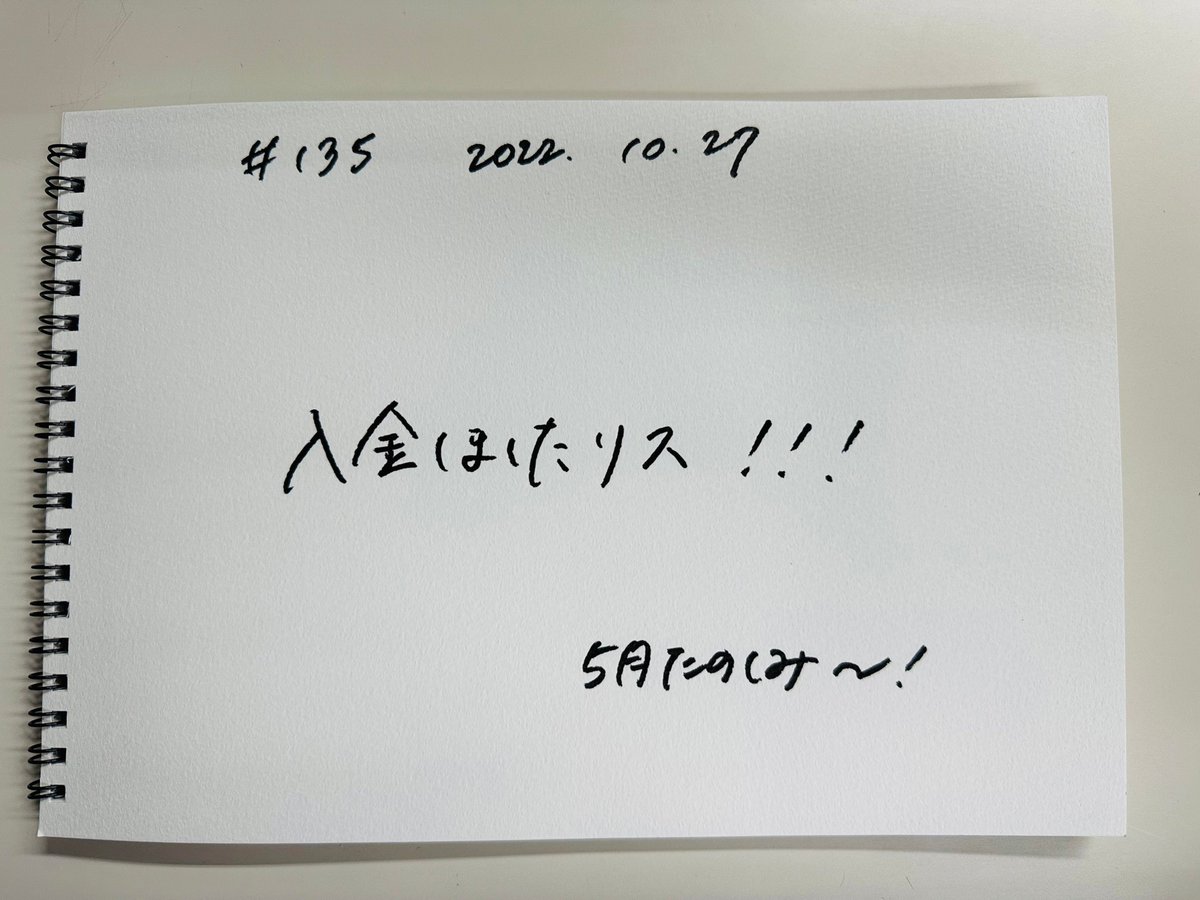 #135 2022. 10. 27
入金しましたリス!!!
5月たのしみ〜!